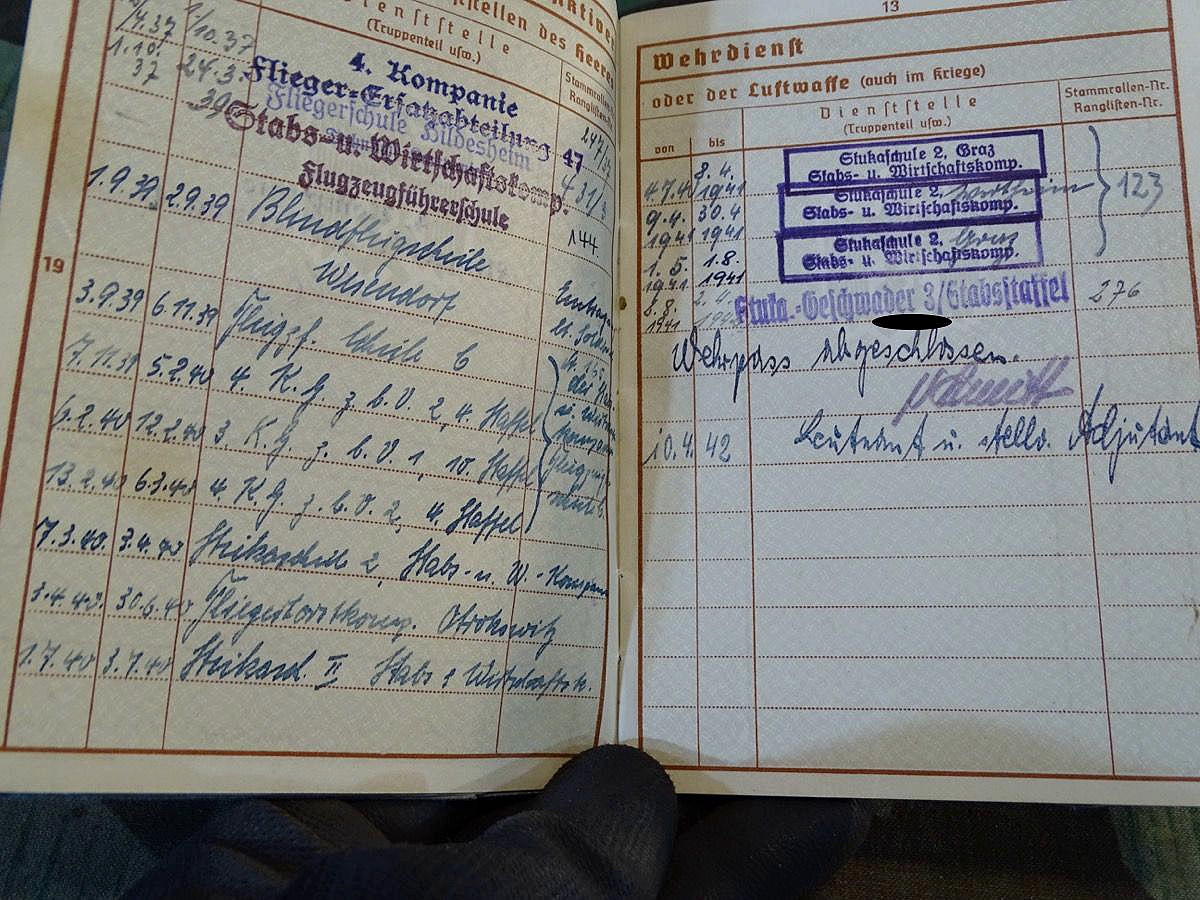 (Truppenteil usw.)
Dienststelle
Stammrollen
Ranglisten-
1.10.37 24.3.39
4. Kompanie
Flieger-Ersatzabteilung 47
Fliegerschule Hildesheim
Stabs- u. Wirtschaftskomp.
Flugzeugführerschule
144
19
1.9.39 2.9.39 Blindflugschule
Wesendorf
3.9.39 6.11.39 Flugzf. Schule C
7.11.39 5.2.40 4. K.G. z.b.V. 2, 4. Staffel
6.2.40 12.2.40 3. K.G. z.b.V. 1, 10. Staffel
13.2.40 6.3.40 4. K.G. z.b.V. 2, 4. Staffel
7.3.40 3.4.40 Stukaschule 2, Stabs- u. W.-Kompanie
3.4.40 30.6.40 Fliegerhorstkomp.
1.7.40 3.7.40 Stukasch. II Stabs + Wirtschaftsk.
13
Wehrdienst
oder der Luftwaffe (auch im Kriege)
Dienststelle
(Truppenteil usw.)
Stammrollen-Nr.
Ranglisten-Nr.
von bis
8.4.1941 Stukaschule 2, Graz
Stabs- u. Wirtschaftskomp.
9.4.1941 30.4.1941 Stukaschule 2,
Stabs- u. Wirtschaftskomp.
123
1.5.1941 1.8.1941 Stukaschule 2, Graz
Stabs- u. Wirtschaftskomp.
2.8.1941 Stuka.-Geschwader 3/Stabsstaffel 276
Wehrpass abgeschlossen.
Schmidt
10.4.42 Leutnant u. stellv. Adjutant